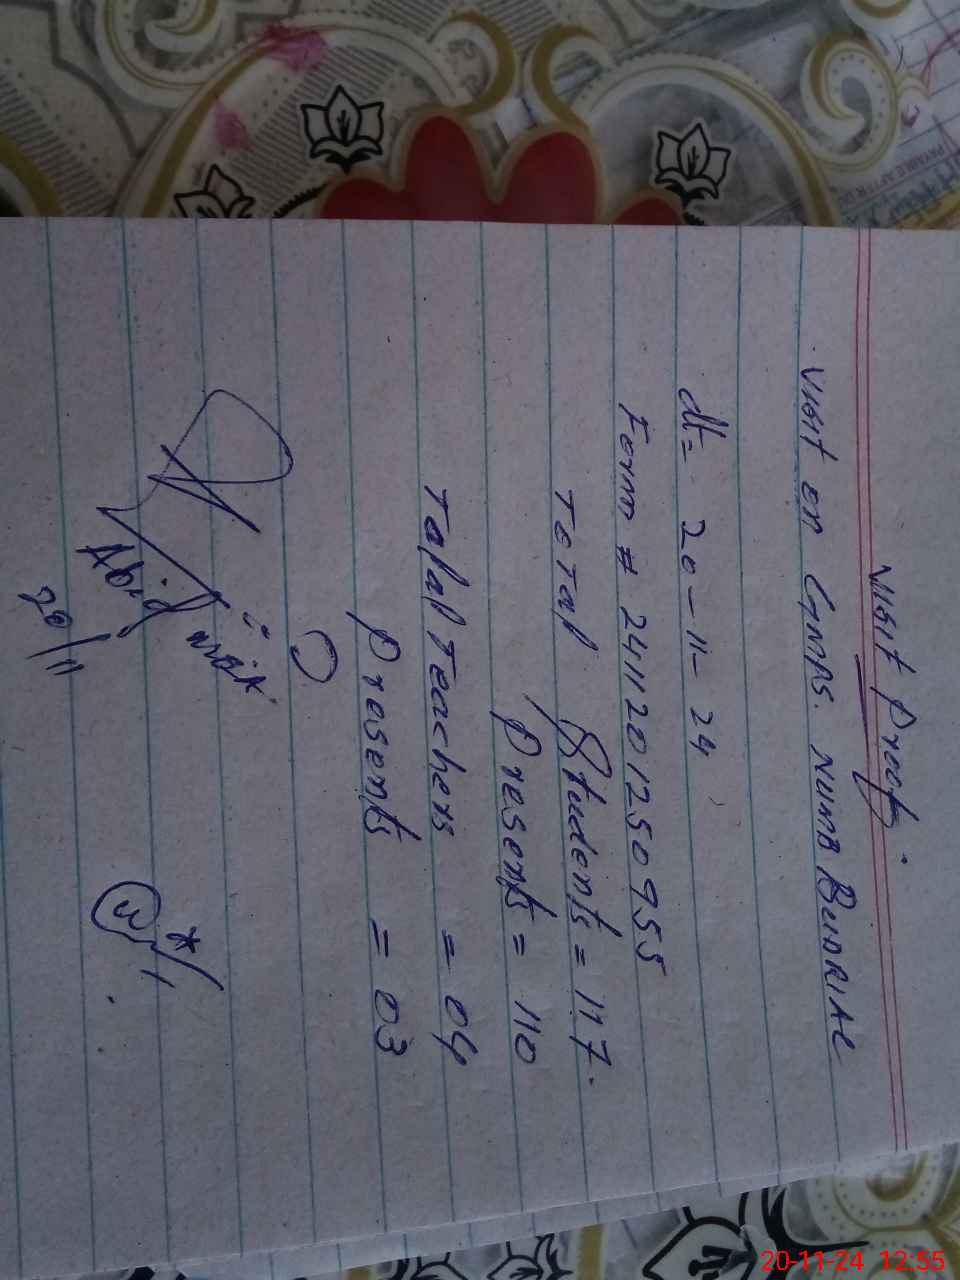 Visit Proof.
Visit on GMPS. NUMB BUDRIAL
dt= 20-11-24
Form # 2411201250955
Total Students = 117.
Presents = 110
Total Teachers = 04
Presents = 03
Abid
20/11
PAYABLE AFTER
20-11-24 12:55